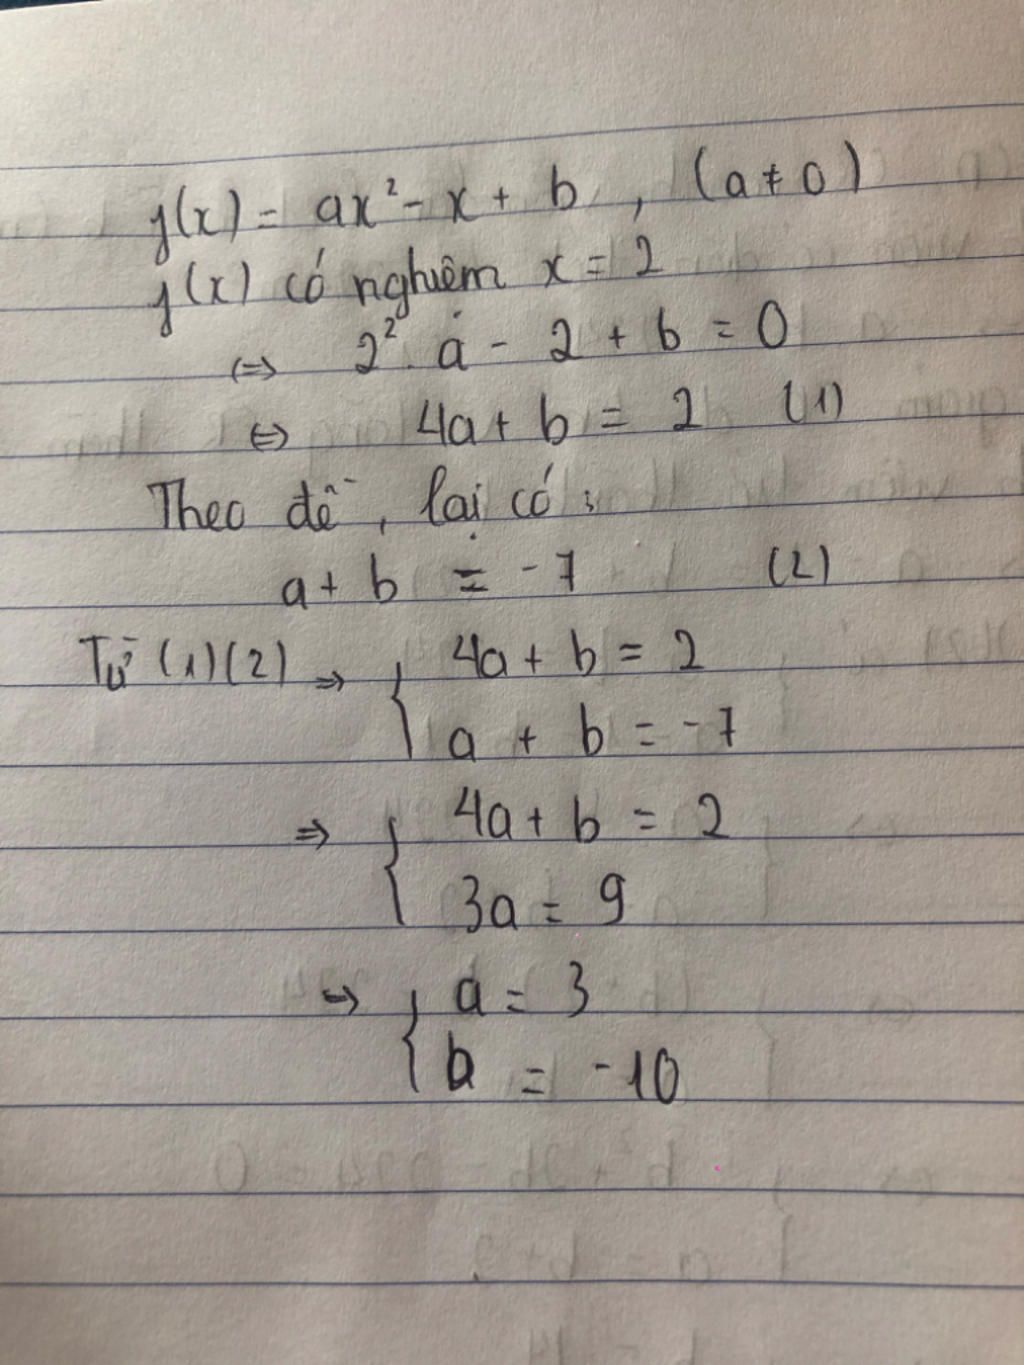 f(x) = ax² - x + b , (a ≠ 0)
f(x) có nghiệm x = 2
⇔ 2² . a - 2 + b = 0
⇔ 4a + b = 2 (1)
Theo đề, lại có :
a + b = -7 (2)
Từ (1)(2) ⇒ { 4a + b = 2
a + b = -7
⇒ { 4a + b = 2
3a = 9
⇒ { a = 3
b = -10